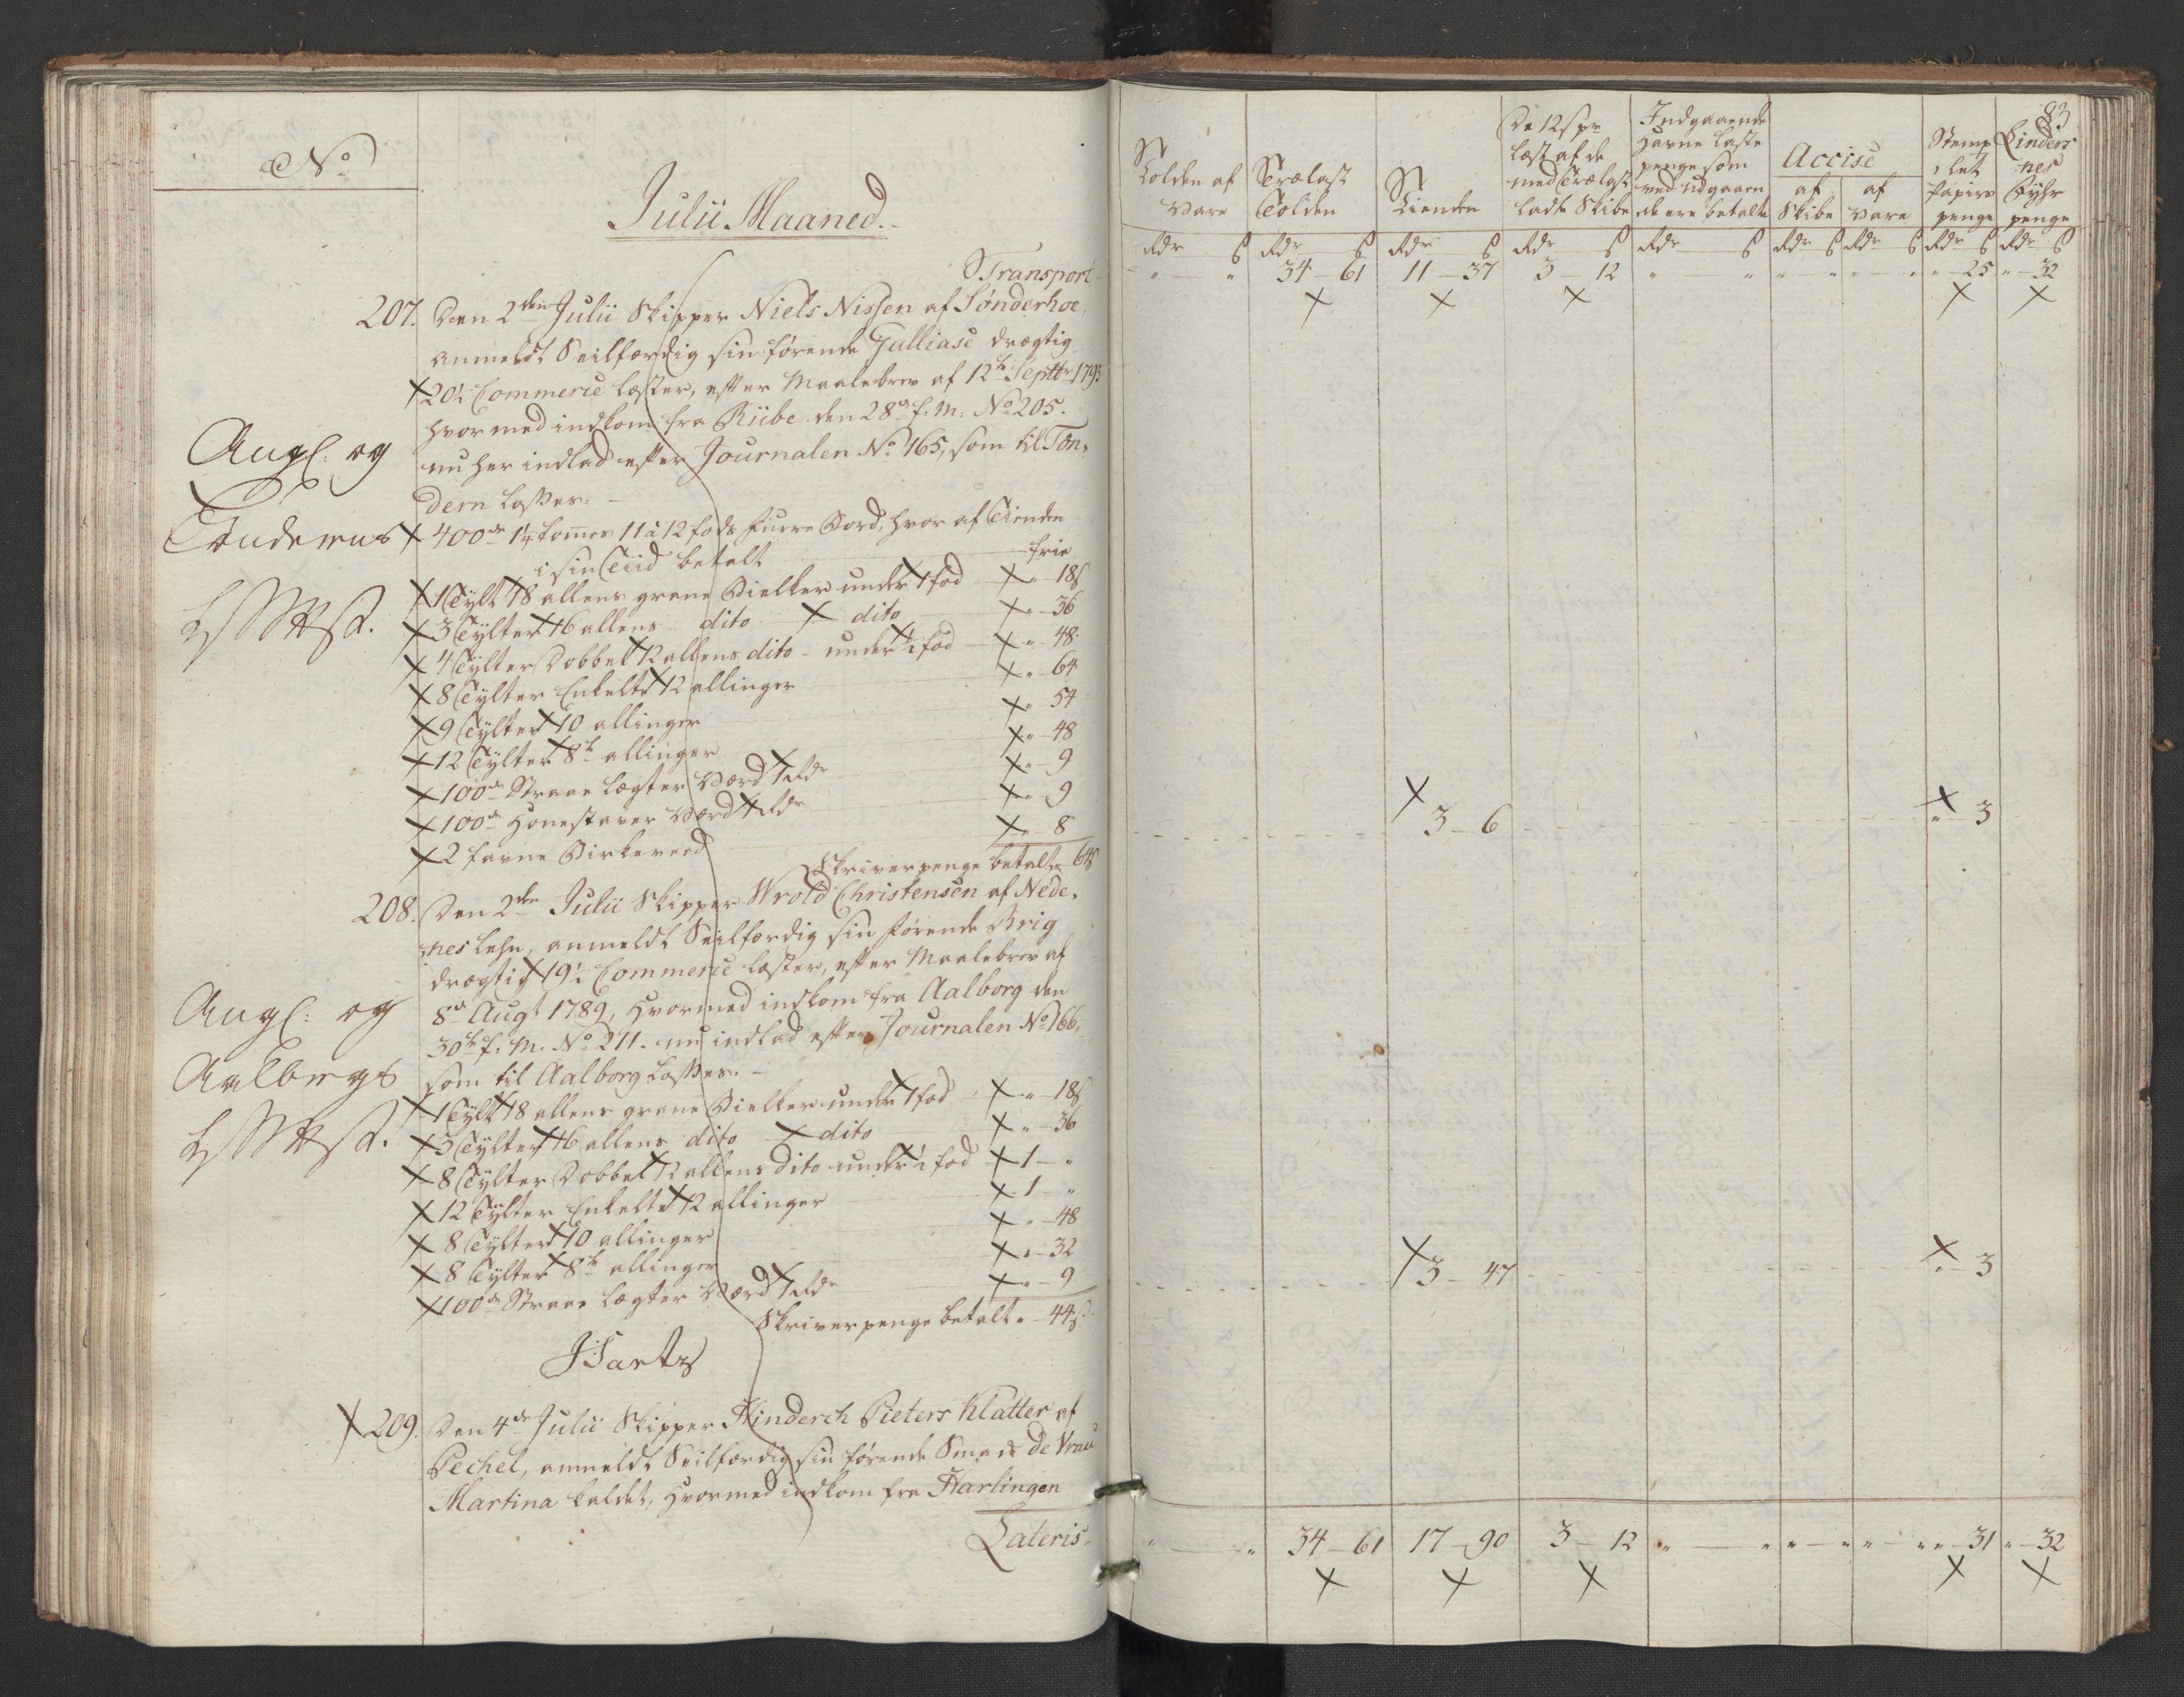 No
Julii Maaned.
Transport
207. Den 2den Julii Skipper Niels Nissen af Sønderhoe
anmeldt Seilfærdig sin førende Galliase drægtig
20½ Commerce Læster, efter Maalebrev af 12te Septbr 1793
hvormed indkom fra Riibe den 28de f. M. No 205.
nu her indlad efter Journalen No 165, som til Tøn-
dern losses:
Angl: og
Tønderns
400de 1¼ tommes 11 à 12 fods furre Bord, hvor af Tienden
i sin Tiid betalt frie
1 Tylt 18 allens grane Bielker under 1 fod " 18 s
3 Tylter 16 allens dito dito " 36
4 Tylter Dobbelt 12 allens dito under ½ fod " 48
8 Tylter Enkelte 12 allinger " 64
9 Tylter 10 allinger " 54
12 Tylter 8te allinger " 48
100de Straae Lægter Værd 1 Rdr " 9
100de Honestaver Værd 1 Rdr " 9
2 favne Birkeveed " 8
Skriverpenge betalt " 64 s
208. Den 2den Julii Skipper Wrold Christensen af Nede-
nes Lehn, anmeldt Seilfærdig sin førende Brig
drægtig 19½ Commerce Læster, efter Maalebrev af
8de Augt 1789, hvormed indkom fra Aalborg den
30te f. M. No 211. nu indlad efter Journalen No 166,
som til Aalborg losses.
Angl: og
Aalborgs
1 Tylt 18 allens grane Bielker under 1 fod " 18 s
3 Tylter 16 allens dito dito " 36
8 Tylter Dobbelt 12 allens dito under ½ fod 1 "
12 Tylter Enkelte 12 allinger 1 "
8 Tylter 10 allinger " 48
8 Tylter 8te allinger " 32
100de Straae Lægter Værd 1 Rdr " 9
Skriverpenge betalt " 44 s
209. Den 4de Julii Skipper Hinderch Pieters Klatter af
Pechel, anmeldt Seilfærdig sin førende Smak De Vrau
Martina kaldet, hvormed indkom fra Harlingen
Lateris
83
Tolden af Vare
Trælast Tolden
Tienden
De 12 s pr Læst af de med Trælast ladte Skibe
Indgaaende Havne Læste penge som ved udgaaende ere betalte
Accise
af Skibe
af Vare
Stemplet Papirs penge
Lindersnes Fyhr penge
Rdr s Rdr s Rdr s Rdr s Rdr s Rdr s Rdr s Rdr s Rdr s
" " 34 61 11 37 3 12 " " " " " " " 25 " 32
3 6 " 3
3 47 " 3
" " 34 61 17 90 3 12 " " " " " " " 31 " 32